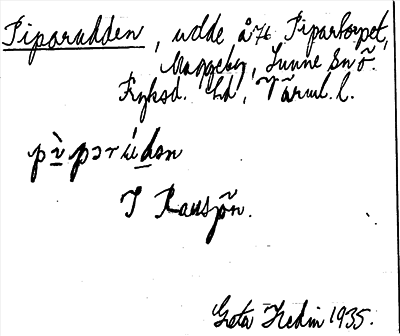 Piparudden, udde å7b Pipartorpet,
Maggeby, Sunne Snõ.
Fryksd. hd, Värml. l.
I Rausjön.
Greta Hedin 1935.